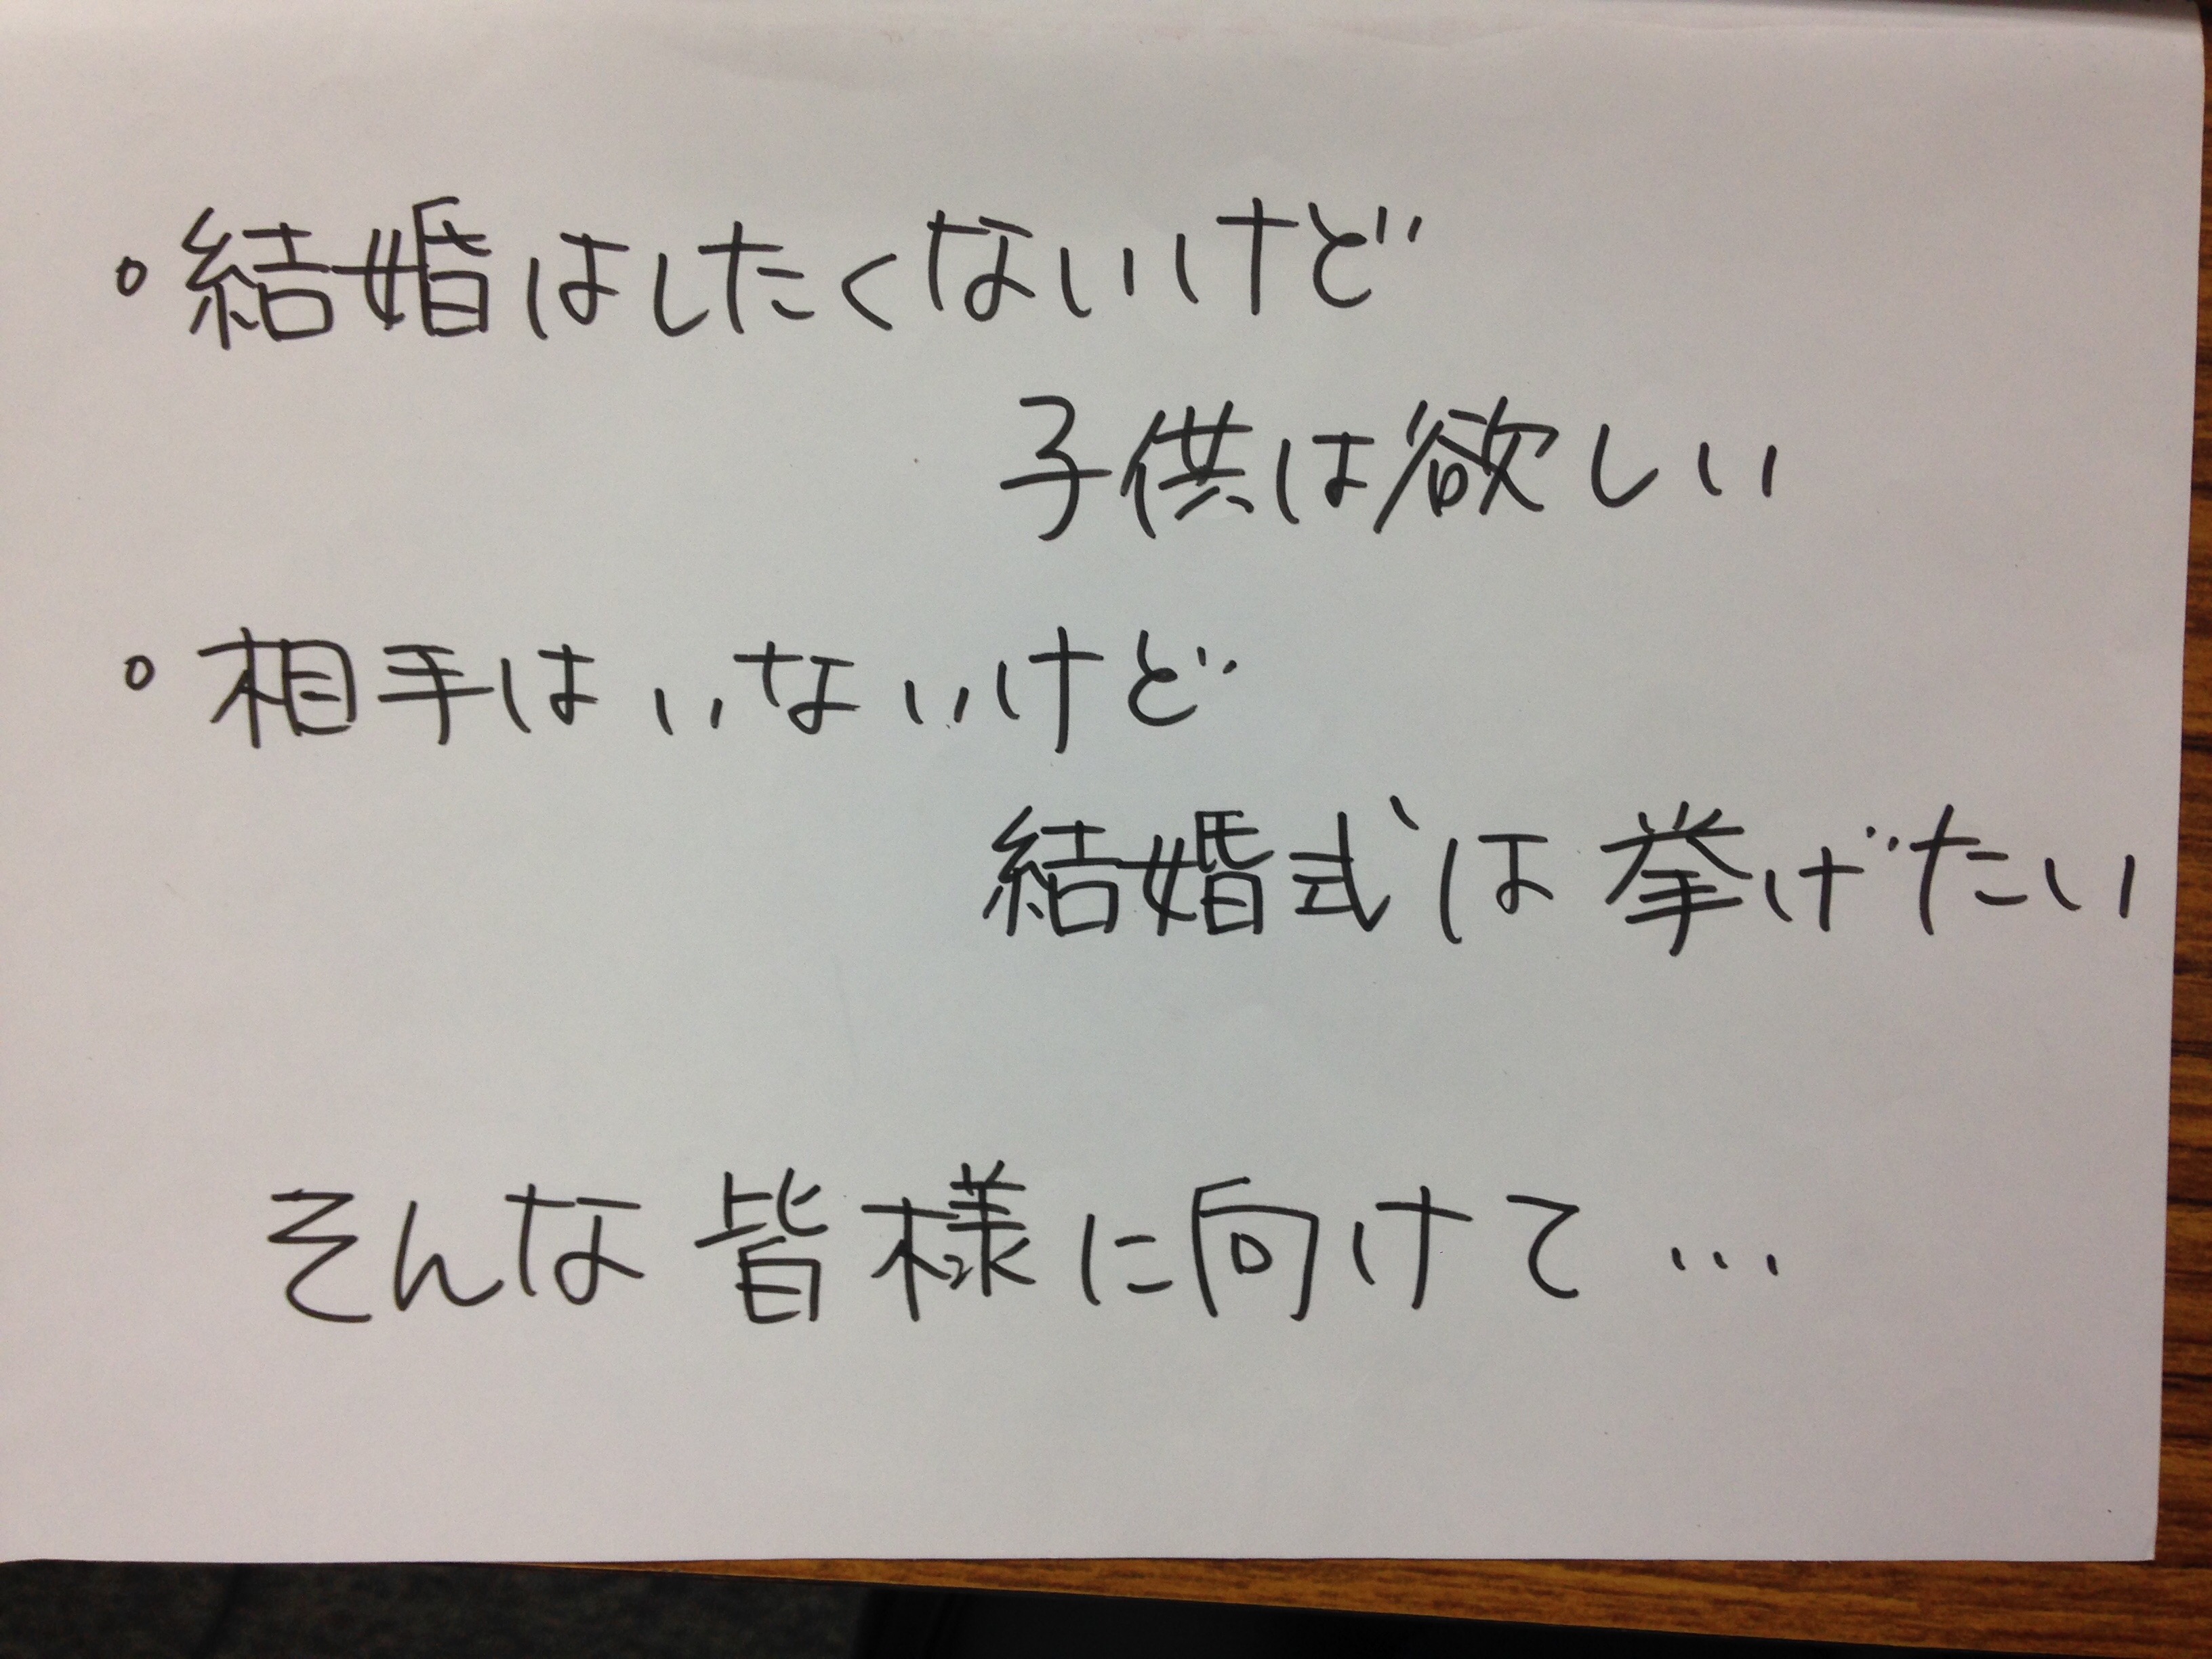 。結婚はしたくないけど
子供は欲しい
。相手はいないけど
結婚式は挙げたい
そんな皆様に向けて…